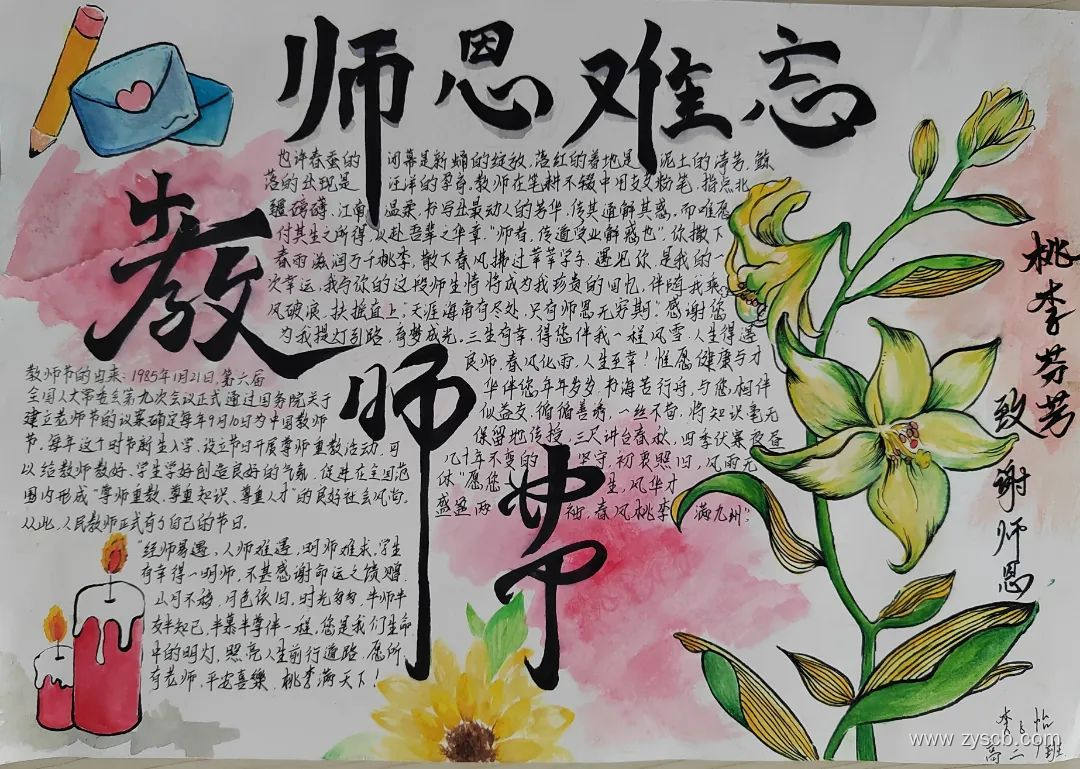 师恩难忘
教师节
也许春蚕的闭幕是新蛹的绽放,落红的着地是泥土的清芳,鲸
落的出现是汪洋的孕育。教师在笔耕不辍中用支支粉笔,指点北
疆磅礴,江南温柔,书写出最动人的芳华,传其道解其惑,而难愿
付其生之所得,以赴吾辈之华章。"师者,传道受业解惑也",你撒下
春雨滋润万千桃李,散下春风拂过莘莘学子,遇见你,是我的一
次幸运,我与你的这段师生情将成为我珍贵的回忆,伴随我乘
风破浪,扶摇直上,天涯海角有尽处,只有师恩无穷期。感谢您
为我提灯引路,育梦成光,三生有幸,得您伴我一程风雪,人生得遇
良师,春风化雨,人生至幸!惟愿健康与才
华伴您年年岁岁,书海苦行舟,与您相伴
似益友,循循善诱,一丝不苟,将知识毫无
保留地传授,三尺讲台春秋,四季伏寒夜昼
几十年不变的坚守,初衷照旧,风雨无
休"愿您生,风华才
盛盈两袖,春风桃李满九州"。
教师节的由来:1985年1月21日,第六届
全国人大常委会第九次会议正式通过国务院关于
建立老师节的议案确定每年9月10日为中国教师
节,每年这个时节新生入学,设立节日开展尊师重教活动,可
以给教师教好,学生学好创造良好的气氛,促进在全国范
围内形成"尊师重教,尊重知识、尊重人才"的良好社会风尚。
从此,人民教师正式有了自己的节日。
"经师易遇,人师难遇,明师难求,学生
有幸得一明师,不甚感谢命运之馈赠
山月不移,月色依旧,时光匆匆,半师半
友半知己,半慕半尊伴一程,您是我们生命
中的明灯,照亮人生前行道路,愿所
有老师,平安喜乐,桃李满天下!
桃李芬芳
致谢师恩
李 怡
高三 班
www.zyscb.com